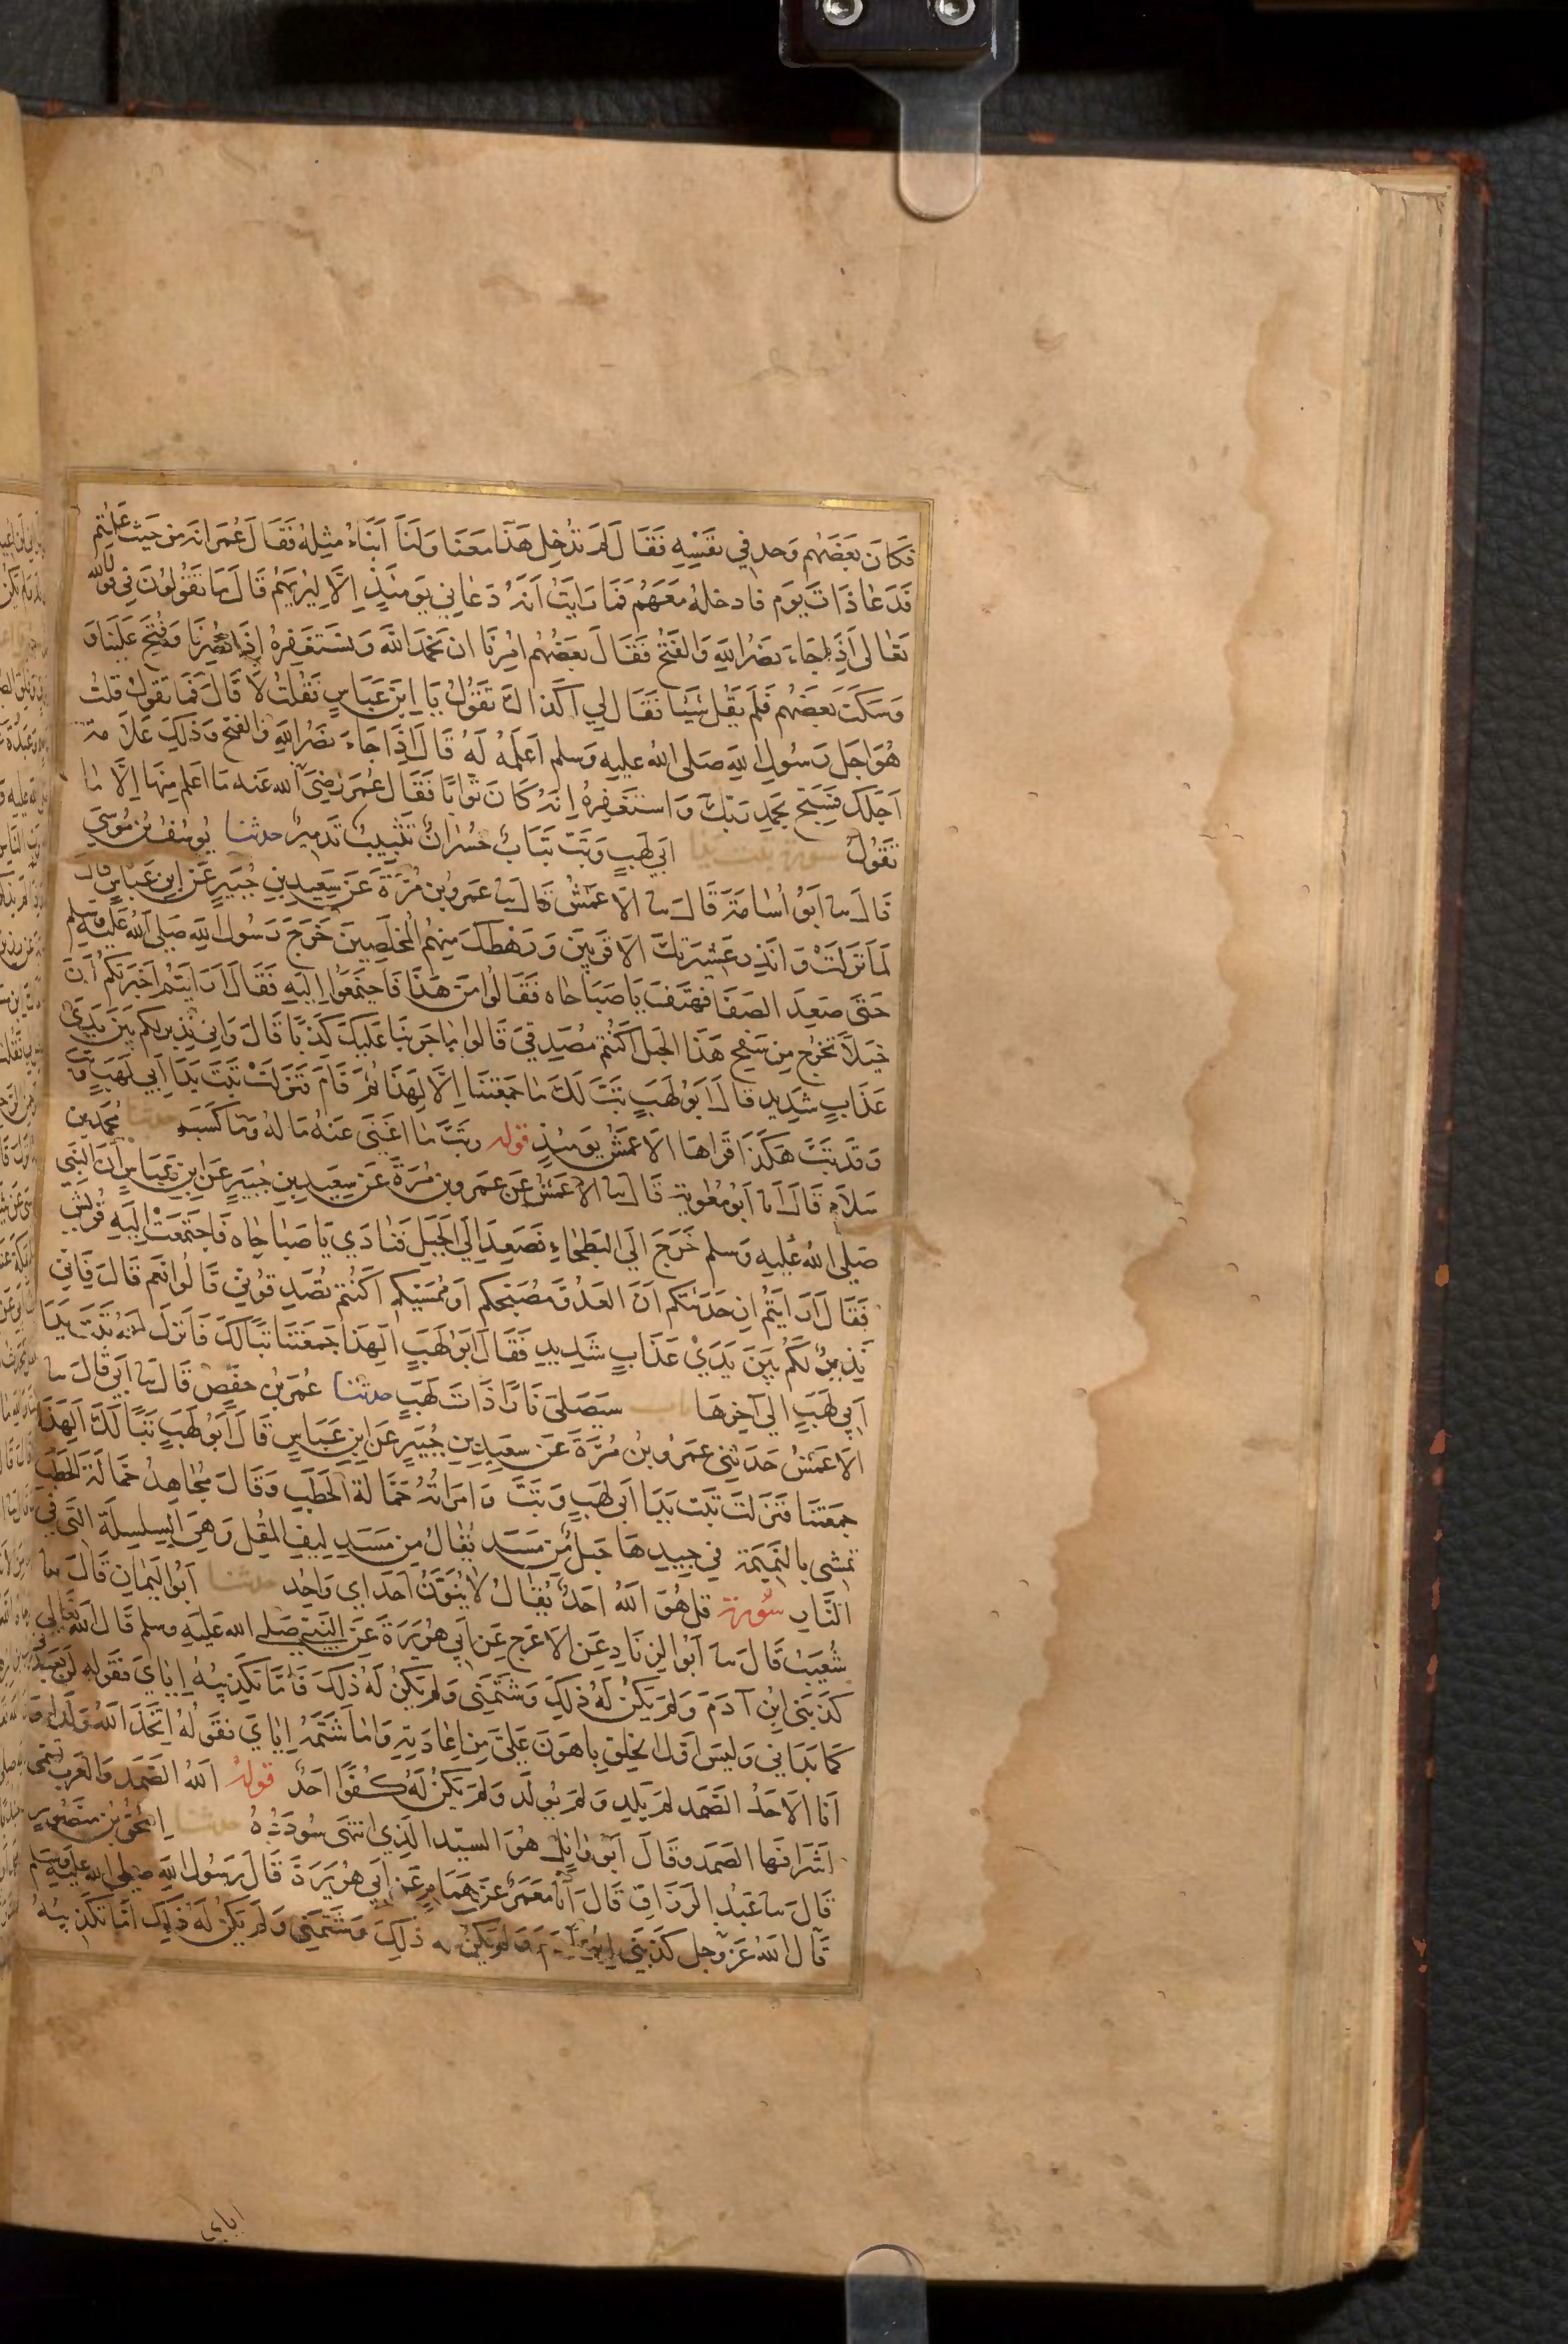 فَكَانَ بَعْضَهُم وَجد في نَفسِهِ فَقَالَ لَم تُدْخِل هَذَا مَعَنَا وَلَنَا أَبْنَاءُ مِثلِهُ فَقَالَ عُمَر انه مِن حَيث عَلمتُم
فَدَعَا ذَاتَ يوَم فادخلهُ مَعَهُم فَمَا رَايَتُ اَنهُ دَعَانِي يَومَئِذٍ اِلَّا لِيُريَهُم قَالَ مَا تَقُولُونَ فِي قول الله
تَعَالى اِذَا جَاءَ نَصْرُ اللَّهِ وَالفَتْحُ فَقَالَ بَعضُهُم اُمِرنَا ان نَحمَدَ اللَّهَ وَنَستَغفِرهُ اِذَا نُصِرنَا وَفُتِحَ عَلَينَا وَ
وَسَكَتَ بَعضَهُم فَلَم يَقُل شَيْئًا فَقَالَ لِي اَكَذَاكَ تَقُولُ يَا اِبنَ عَبَاسٍ فَقُلتُ لَا قَالَ فَمَا تقُولُ قلتُ
هُوَ اجَل رَسُولِ اللَّهِ صَلى الله عليه وَسلم اَعلَمهُ لَهُ قَالَ اِذَا جَاءَ نَصْرُ اللَّهِ وَالفتح وَذَلِكَ عَلَامة
اَجَلكَ فَسَبِّح بِحَمدِ رَبّكَ وَاستَغفِرهُ اِنّهُ كَانَ تَوابًا فَقَالَ عُمَر رَضِيَ الله عَنه مَا اَعلَم مِنهَا اِلَّا مَا
تَقُولُ سورة تبت يدا اَبي لَهَبٍ وَتَبَ تَبَابٌ خُسْرَانٌ تَتْبِيبٌ تَدمِيرٌ حدثنا يُوسُفُ بنُ مُوسَى
قَالَ سا اَبُو اُسَامَة قَالَ سا الاعمَشُ قَالَ سا عَمروبن مُرَّةَ عَن سَعِيدِ بنِ جُبَيرٍ عَنِ ابن عَبَاسٍ قالَ
لَمَا نَزَلَتْ وَاَنذِر عَشِيرَتكَ الاقرَبِينَ وَرَهْطكَ مِنهُم المُخلَصِينَ خَرَجَ رَسُول اللهِ صَلى الله عَلَيهِ وسَلم
حَتَّى صَعِدَ الصَفَا فهَتَفَ يَا صَبَاحَاه فَقَالُوا مَن هَذَا فَاجتَمَعُوا اِلَيهِ فَقَالَ اَرَايتُم اِن اَخبَرتكُم اَنّ
خَيلًا تَخرُج مِن سَفحِ هَذَا الجَبل اَكُنتُم مُصَدِقيَّ قَالوا مَا جَربنَا عَلَيكَ كَذبًا قَالَ وَاِني نَذِير لكم بَينَ يَدَي
عَذَابٍ شَدِيدٍ قالَ اَبُو لَهَبٍ تَبَّ لَكَ مَا جَمَعتَنَا اِلَّا لِهَذَا ثُمَّ قَامَ فَنَزلَتْ تَبَتْ يَدَا اَبي لَهَبٍ وتب
وَقَد تَبَّ هَكَذَا قَرَاهَا الاعمَش يَومَئِذٍ قوله وَتَبَّ مَا اَغنَى عَنهُ مَاله وَمَا كَسَبَ حدثنا مُحَمدبن
سَلَام قَالَ انا اَبُو مُعٰوِية قَالَ سا الاعمَشُ عَن عَمروبن مُرَةَ عَن سَعِيدِ بنِ جُبَيرٍ عَن ابن عَبَاسٍ اَن النَبِي
صَلى الله عَليهِ وَسلم خَرَجَ الَي البَطحَاءِ فَصَعِدَ اِلَي الجَبَلِ فنَادَي يَا صَبَاحَاه فَاجتَمَعَتْ اِلَيهِ قرَيش
فَقَالَ اَرَايتُم اِن حَدَثتكم اَنَّ العَدُوَّ مُصَبحكُم اَو مُمَسّيكم اَكُنتُم تُصَدِقُونِي قَالوا نَعم قَالَ فَاِني
نَذيرٌ لَكُم بَينَ يَدَي عَذَابٍ شَدِيدٍ فَقَالَ اَبُو لَهَبٍ اَلِهَذَا جَمَعتَنَا تَبًا لَكَ فَانزَلَ اللهُ تَبَتْ يَدَا
اَبِي لَهَبٍ الي اٰخِرهَا باب سَيَصْلَى نَارًا ذَاتَ لَهَبٍ حدثنا عُمَر بن حَفصٍ قَالَ سا اَبِي قَالَ سا
الاعمَشُ حَدَثني عَمرُو بنُ مُرَّةَ عَن سَعِيدِ بنِ جُبَيرٍ عَن ابنِ عَبَاسٍ قَالَ اَبُو لَهَبٍ تَبًا لَكَ اَلِهَذَا
جَمَعتَنَا فَنَزَلَتْ تَبَّت يَدَا اَبِي لَهَبٍ وَتَبَّ وَامرَاتُهُ حَمَالةَ الحَطَبِ وَقَالَ مُجَاهِدٌ حَمَالةَ الحَطَبِ
تمشِي بالنَمِيمَة في جِيدِهَا حَبلٌ مِن مَسَدٍ يُقَالُ مِن مَسَدٍ لِيفِ المُقلِ وَهِيَ السِلسِلَة التَي في
النَارِ سُورة قُل هُوَ اللهُ اَحَدٌ يُقَالُ لَا يُنَوَّنُ اَحَد اي وَاحِد حدثنا اَبُو اليَمانِ قَالَ سا
شُعَيبٌ قَالَ سا اَبُو الزِنَادِ عَن الاعرَج عَن اَبِي هُرَيرَةَ عَن النَبِي صَلى الله عَليهِ وسلم قَالَ الله تعَالى
كَذَبَنِي ابْن اٰدَمَ وَلَم يَكُن لَهُ ذلِكَ وَشَتَمَنِي وَلم يَكُن لَهُ ذلِكَ فَاَمَّا تَكذِيبُهُ اِيَايَ فَقَولُه لَن يُعيدَني
كَمَا بَدَانِي وَلَيسَ اَوَلُ الخلقِ باهوَنَ عَلَيَّ مِن اِعَادَتِهِ وَاَمَا شَتمُهُ اِيَايَ فَقَولُهُ اتَّخَذَ اللهُ وَلَدًا وَ
اَنَا الاَحَدُ الصَّمَد لَم يَلِد وَلَم يُولَد وَلَم يَكُن لَهُ كُفُوًا اَحَدٌ قوله اَللهُ الصَمَد وَالعَرب تُسَمّي
اَشرَافَهَا الصَمَد وَقَالَ اَبُو وَائِلٍ هُوَ السَيِّد الَذِي انتَهَى سُودَدُهُ حدثنا اِسحٰق بن مَنصُورٍ
قَالَ سا عَبدُ الرَزَاقِ قَالَ اَنَا مَعمَرٌ عَن هَمَامٍ عَن اَبِي هُرَيرَةَ قَالَ رَسُولُ اللهِ صلى الله عَليه وَسَلم
قَالَ اللهُ عَزَّ وَجل كَذَبَنِي ابن اٰدَم وَلَم يَكُن له ذَلِكَ وَشَتَمَنِي وَلَم يَكُن لَهُ ذَلِكَ اَمَّا تَكذِيبُهُ
اياي